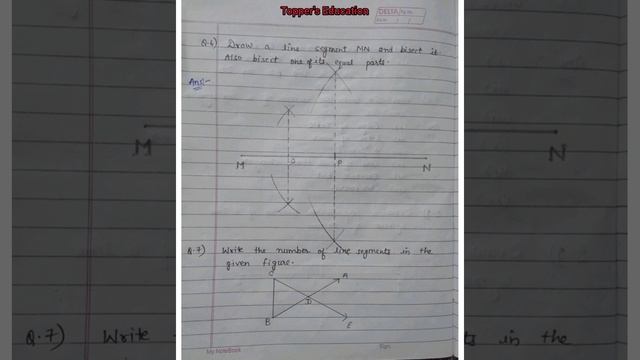 Topper's Education
DELTA Pg No.
Q.6) Draw a line segment MN and bisect it.
Also bisect one of its equal parts.
Ans:-
M P N
Q.7) Write the number of line segments in the
given figure.
C A
D
B E
My NoteBook
Sign
M N
Q.7) Write
ts in the